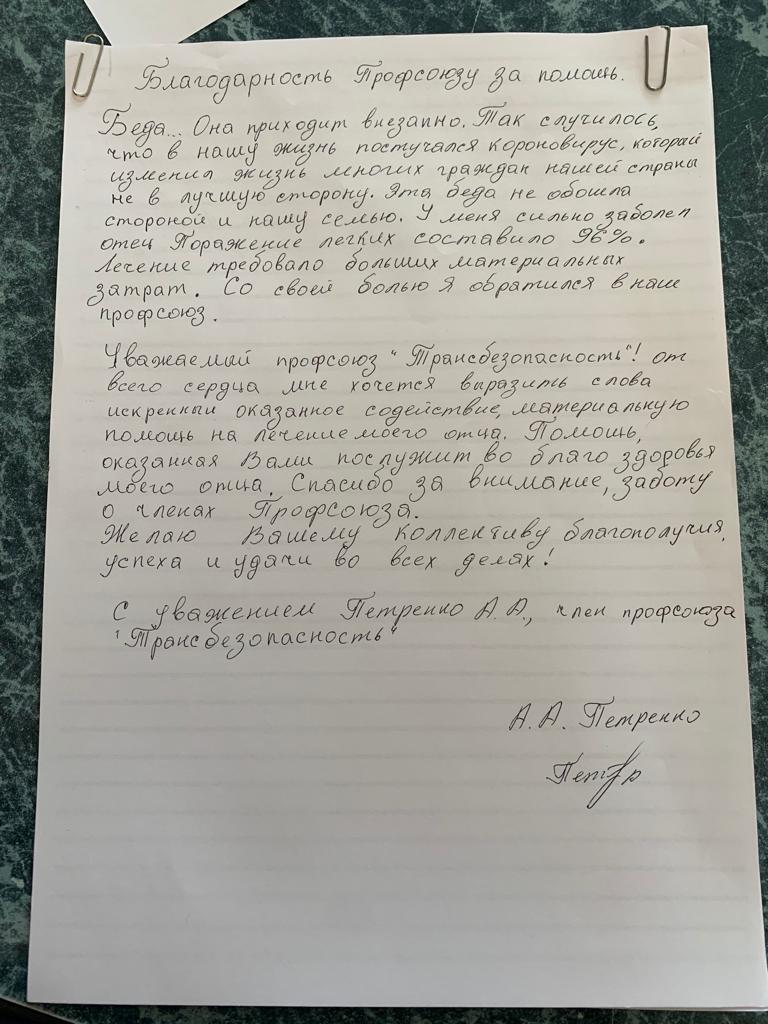 Благодарность Профсоюзу за помощь.
Беда... Она приходит внезапно. Так случилось,
что в нашу жизнь постучался короновирус, который
изменил жизнь многих граждан нашей страны
не в лучшую сторону. Эта беда не обошла
стороной и нашу семью. У меня сильно заболел
отец Поражение легких составило 96%.
Лечение требовало больших материальных
затрат. Со своей болью я обратился в наш
профсоюз.
Уважаемый профсоюз "Трансбезопасность"! от
всего сердца мне хочется выразить слова
искренный оказанное содействие, материальную
помощь на лечение моего отца. Помощь,
оказанная Вами послужит во благо здоровья
моего отца. Спасибо за внимание, заботу
о членах Профсоюза.
Желаю Вашему коллективу благополучия,
успеха и удачи во всех делах!
С уважением Петренко А.А., член профсоюза
"Трансбезопасность"
А.А. Петренко